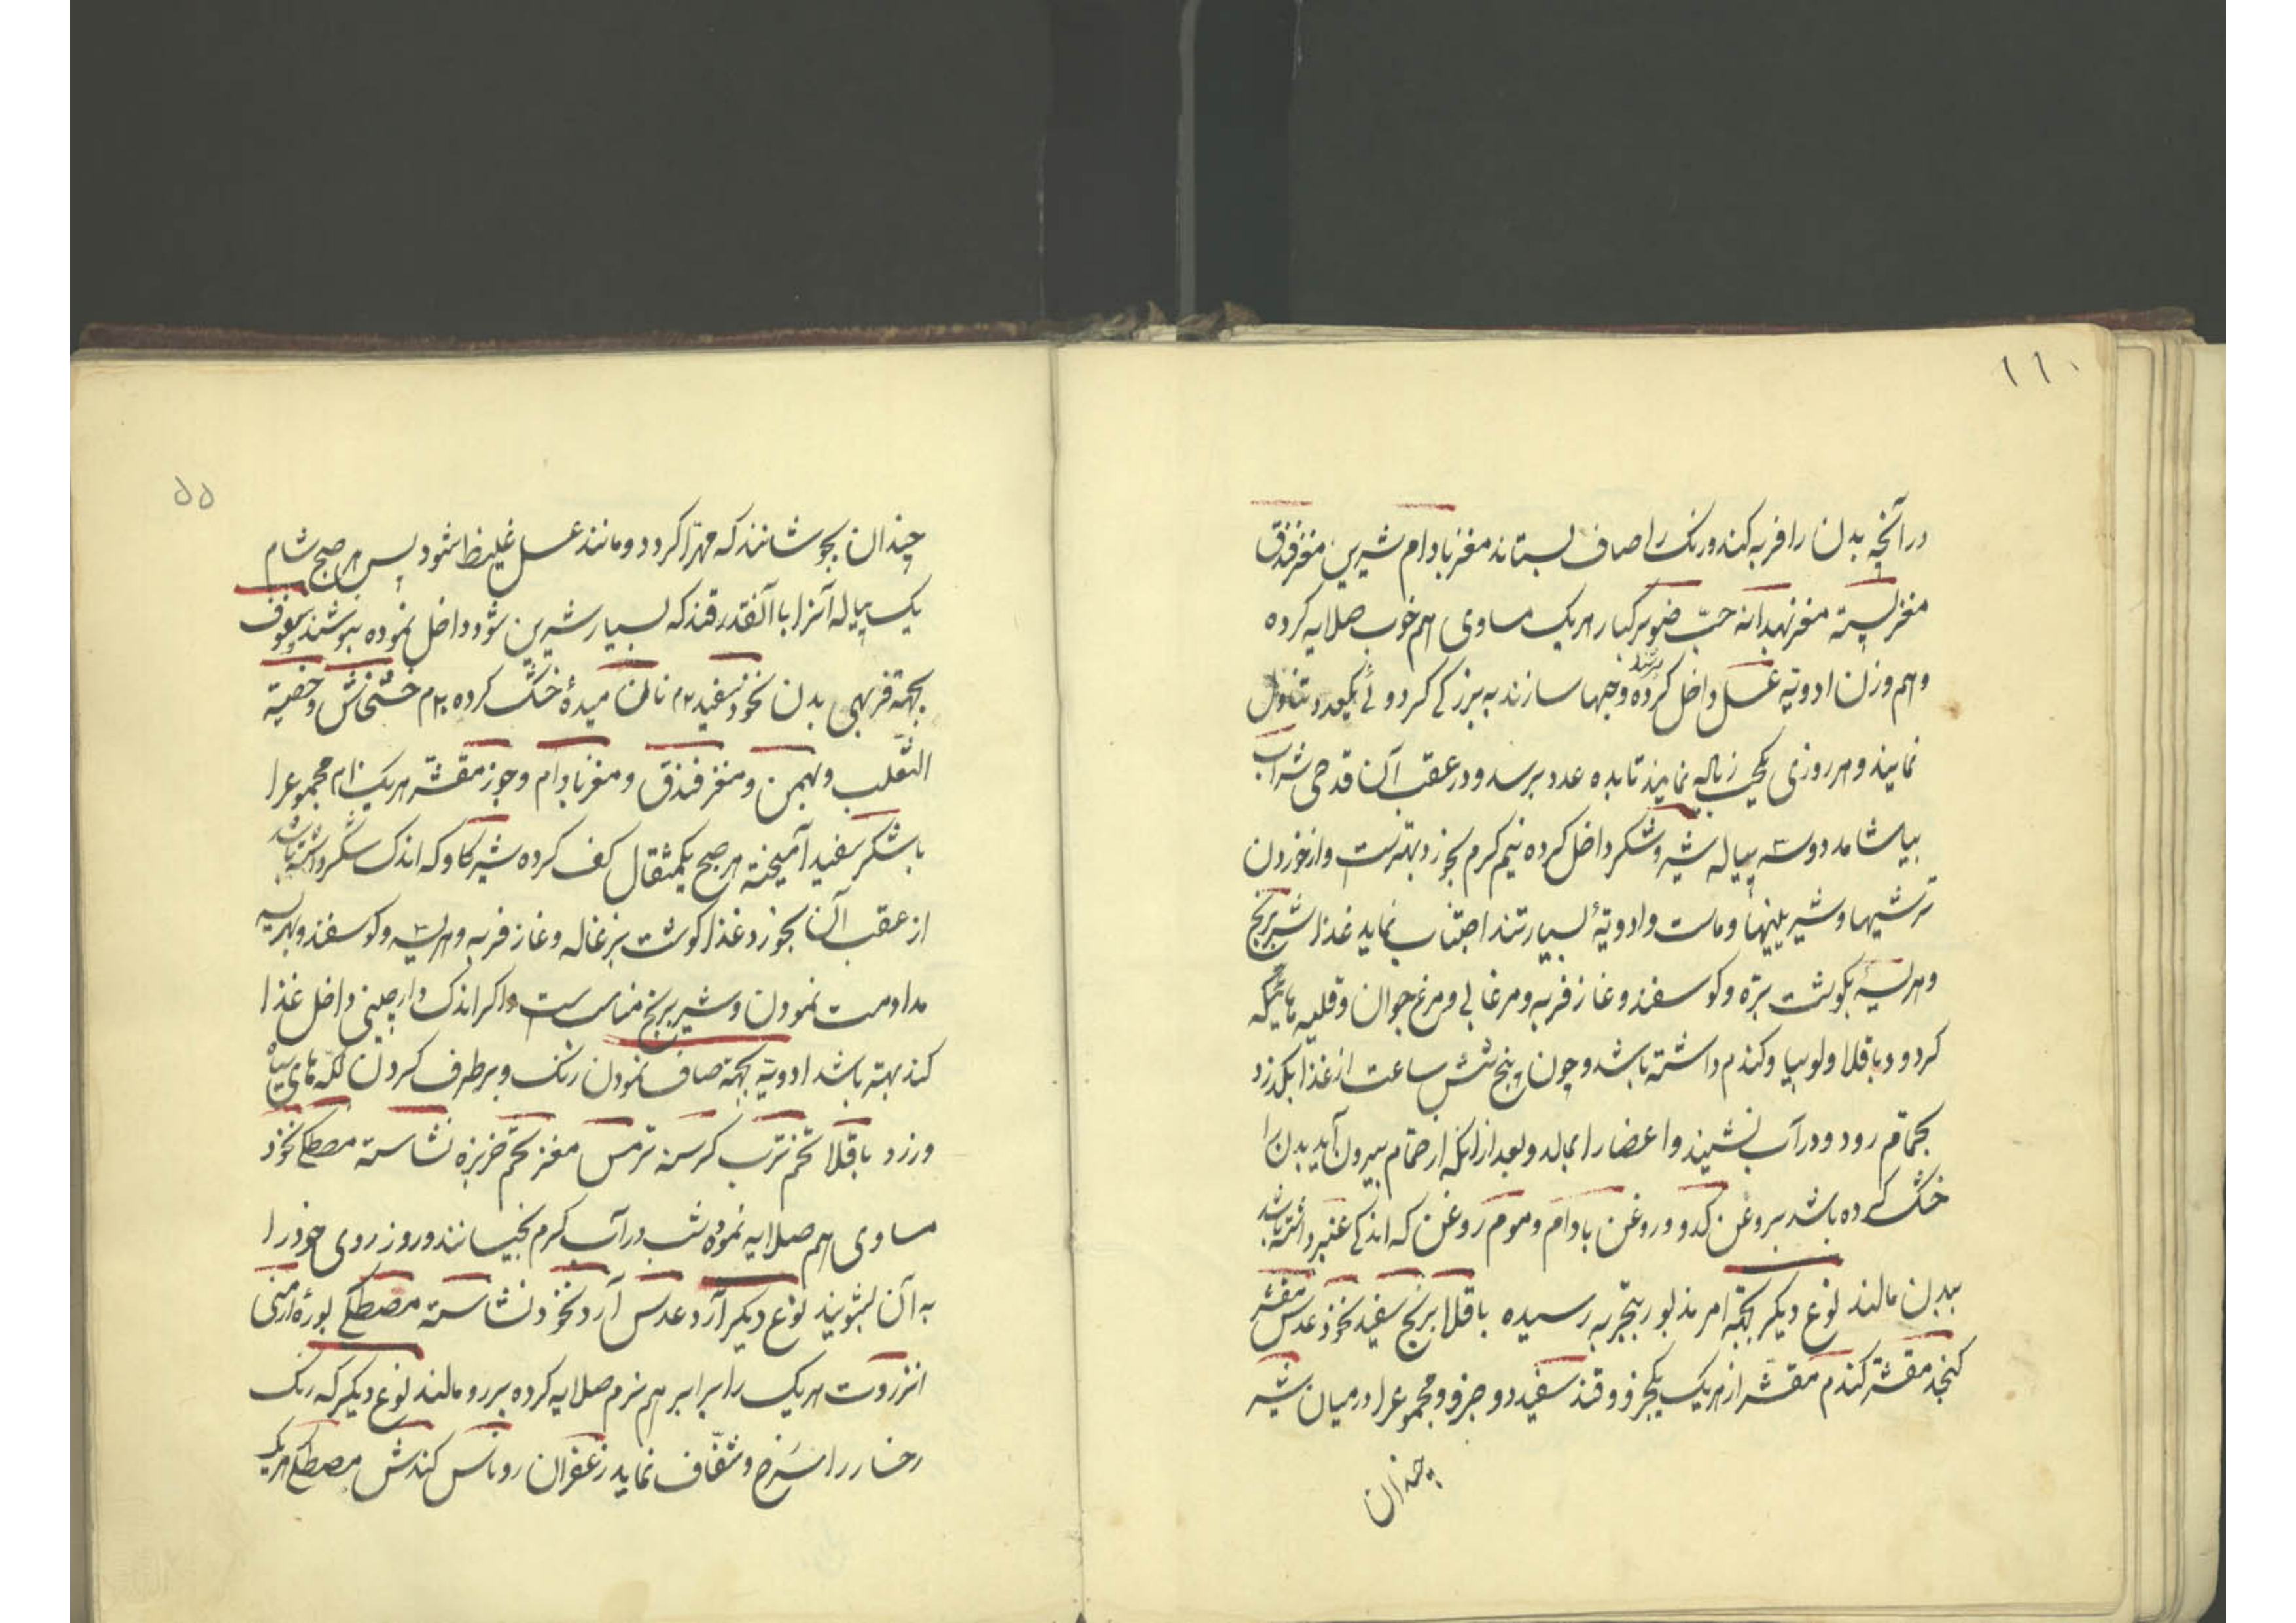 ۱۱۰
در آنچه بدن را فربه کند و رنک را صاف بستانند مغز بادام شیرین مغز فندق
مغز پسته مغز بهدانه حبّ صنوبر کبار هریک مساوی هم خوب صلایه کرده
و هم وزن ادویه عسل داخل کرده و حبها سازند به بزرکی کردو و یکعدد تناول
نمایند و هر روزی یکحب زیاله نمایند تا بده عدد برسد و در عقب آن قدحی شراب
بیاشامد دو سه پیاله شیر و شکر داخل کرده نیم کرم بخورد بهترست و از خوردن
ترشیها و شیرینیها و ماست و ادویهٔ بسیار تند اجتناب نماید غذا شیر برنج
و هریسهٔ بکوشت برّه و کوسفند و غاز فربه و مرغابی و مرغ جوان و قلیه
کردو و باقلا و لوبیا و کندم داشته باشد و چون پنج شش ساعت از غذا بکذرد
بحمام رود و در آب نشیند و اعضا را بمالد و بعد از انکه از حمّام بیرون آید بدن را
خشک کرده باشد بروغن کدو و روغن بادام و موم روغن که اندکی عنبر داشته باشد
ببدن مالند نوع دیکر بجهة امر مذبور بتجربه رسیده باقلا برنج سفید نخود عدس مقشر
کنجد مقشّر کندم مقشّر از هریک یکجزو و قند سفید دو جزو و مجموعرا در میان شیر
چندان
۵۵
چندان بجوشانند که مهرّا کردد و مانند عسل غلیظ شود پس هر صبح شام
یک پیاله آنرا با آنقدر قند که بسیار شیرین شود داخل نموده بنوشند سفوف
بجهة فربهی بدن نخود سفید ۲۰م نان میدهٔ خشک کرده ۳۰م خشخاش و خصیة
الثعلب و بهمن و مغز فندق و مغز بادام و جوز مقشّر هریک ۱۰م مجموعرا
با شکر سفید آمیخته هر صبح یکمثقال کف کرده شیر کاو که اندک شکر داشته باشد
از عقب آن بخورد و غذا کوشت بزغاله و غاز فربه و هریسه و کوسفند و بهریسه
مداومت نمودن و شیر برنج مناسبست و اکر اندک دارچینی داخل غذا
کند بهتر باشد ادویه بجهة صاف نمودن رنک و برطرف کردن لکّه های سیاه
و زرد باقلا تخم ترب کرسنه ترمس مغز تخم خربزه نشاسته مصطکی نخود
مساوی هم صلایه نموده شب در آب کرم بخیسانند و روز روی خود را
به آن بشویند نوع دیکر آرد عدس آرد نخود نشاسته مصطکی بورهٔ ارمنی
انزروت هریک را برابر هم نرم صلایه کرده بر رو مالند نوع دیکر که رنک
رخسار را سرخ و شفّاف نماید زعفران روناس کندش مصطکی هریک